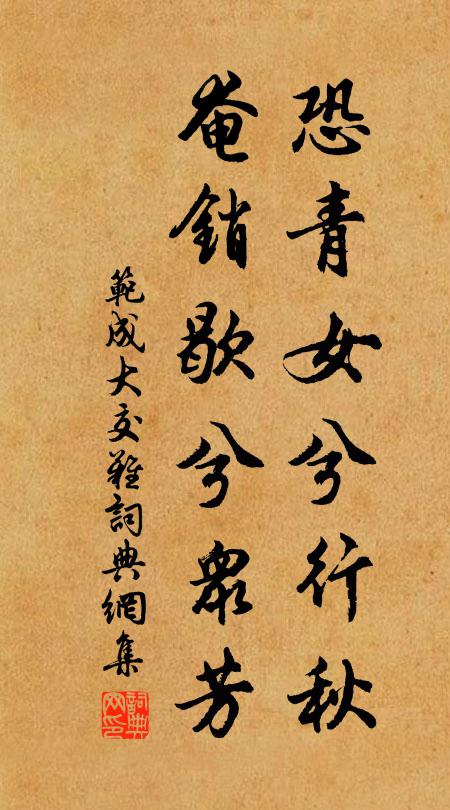 恐青女兮行秋
奄銷歇兮眾芳
範成大交難詞典網集
詞典网印